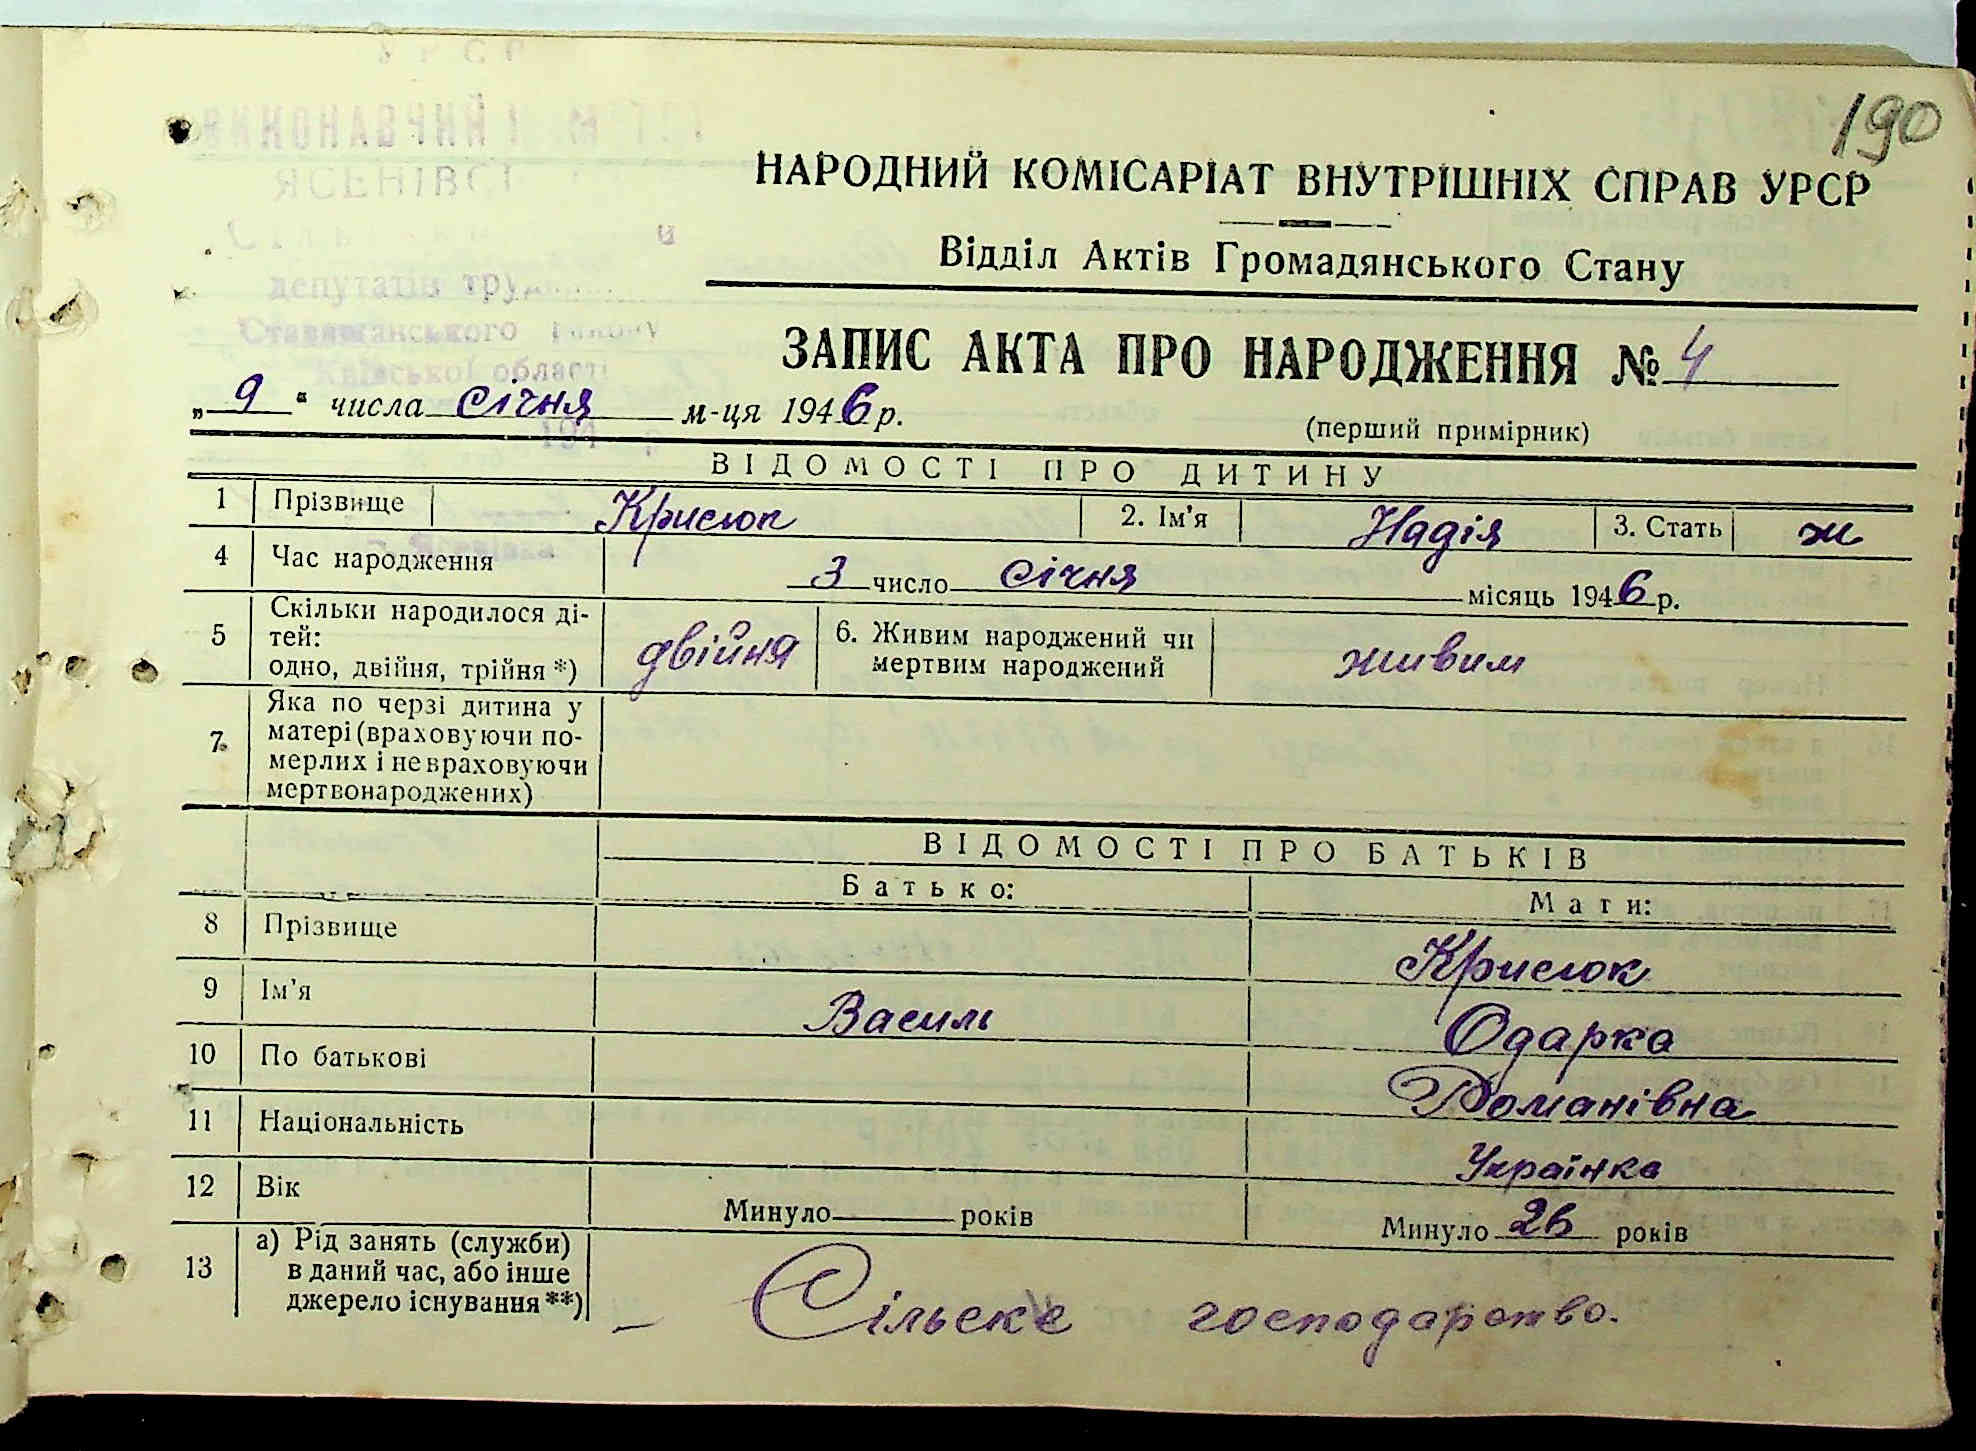 190
УРСР
ВИКОНАВЧИЙ
ЯСЕНІВСЬ
депутатів
Ставищанського району
Київської області
НАРОДНИЙ КОМІСАРІАТ ВНУТРІШНІХ СПРАВ УРСР
Відділ Актів Громадянського Стану
ЗАПИС АКТА ПРО НАРОДЖЕННЯ № 4
„ 9 “ числа січня м-ця 1946 р.
(перший примірник)
ВІДОМОСТІ ПРО ДИТИНУ
1 Прізвище Крисюк 2. Ім’я Надія 3. Стать ж
4 Час народження 3 число січня місяць 1946 р.
5 Скільки народилося ді-
тей:
одно, двійня, трійня *) двійня
6. Живим народжений чи
мертвим народжений живим
7. Яка по черзі дитина у
матері (враховуючи по-
мерлих і не враховуючи
мертвонароджених)
ВІДОМОСТІ ПРО БАТЬКІВ
Батько: Мати:
8 Прізвище Крисюк
9 Ім’я Василь Одарка
10 По батькові Романівна
11 Національність Українка
12 Вік Минуло років Минуло 26 років
13 а) Рід занять (служби)
в даний час, або інше
джерело існування **) — Сільське господарство.